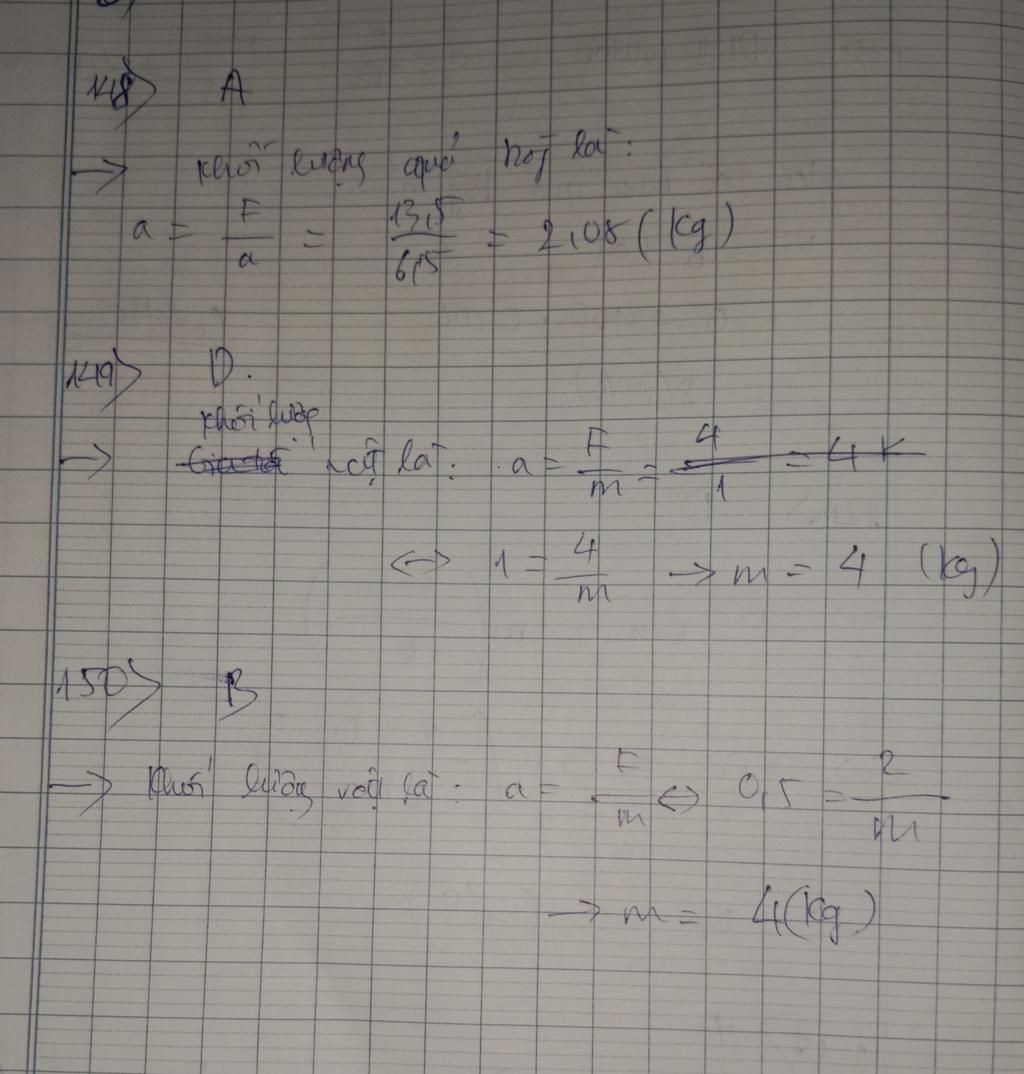 148) A
→ Khối lượng quả tạ là:
a = F/a = 13,5/6,5 = 2,08 (kg)
149) D.
Khối lượng
→ vật là: a = F/m = 4/1 = 4 K
<-> 1 = 4/m → m = 4 (kg)
150) B
→ Khối lượng vật là: a = F/m <-> 0,5 = 2/m
→ m = 4 (kg)